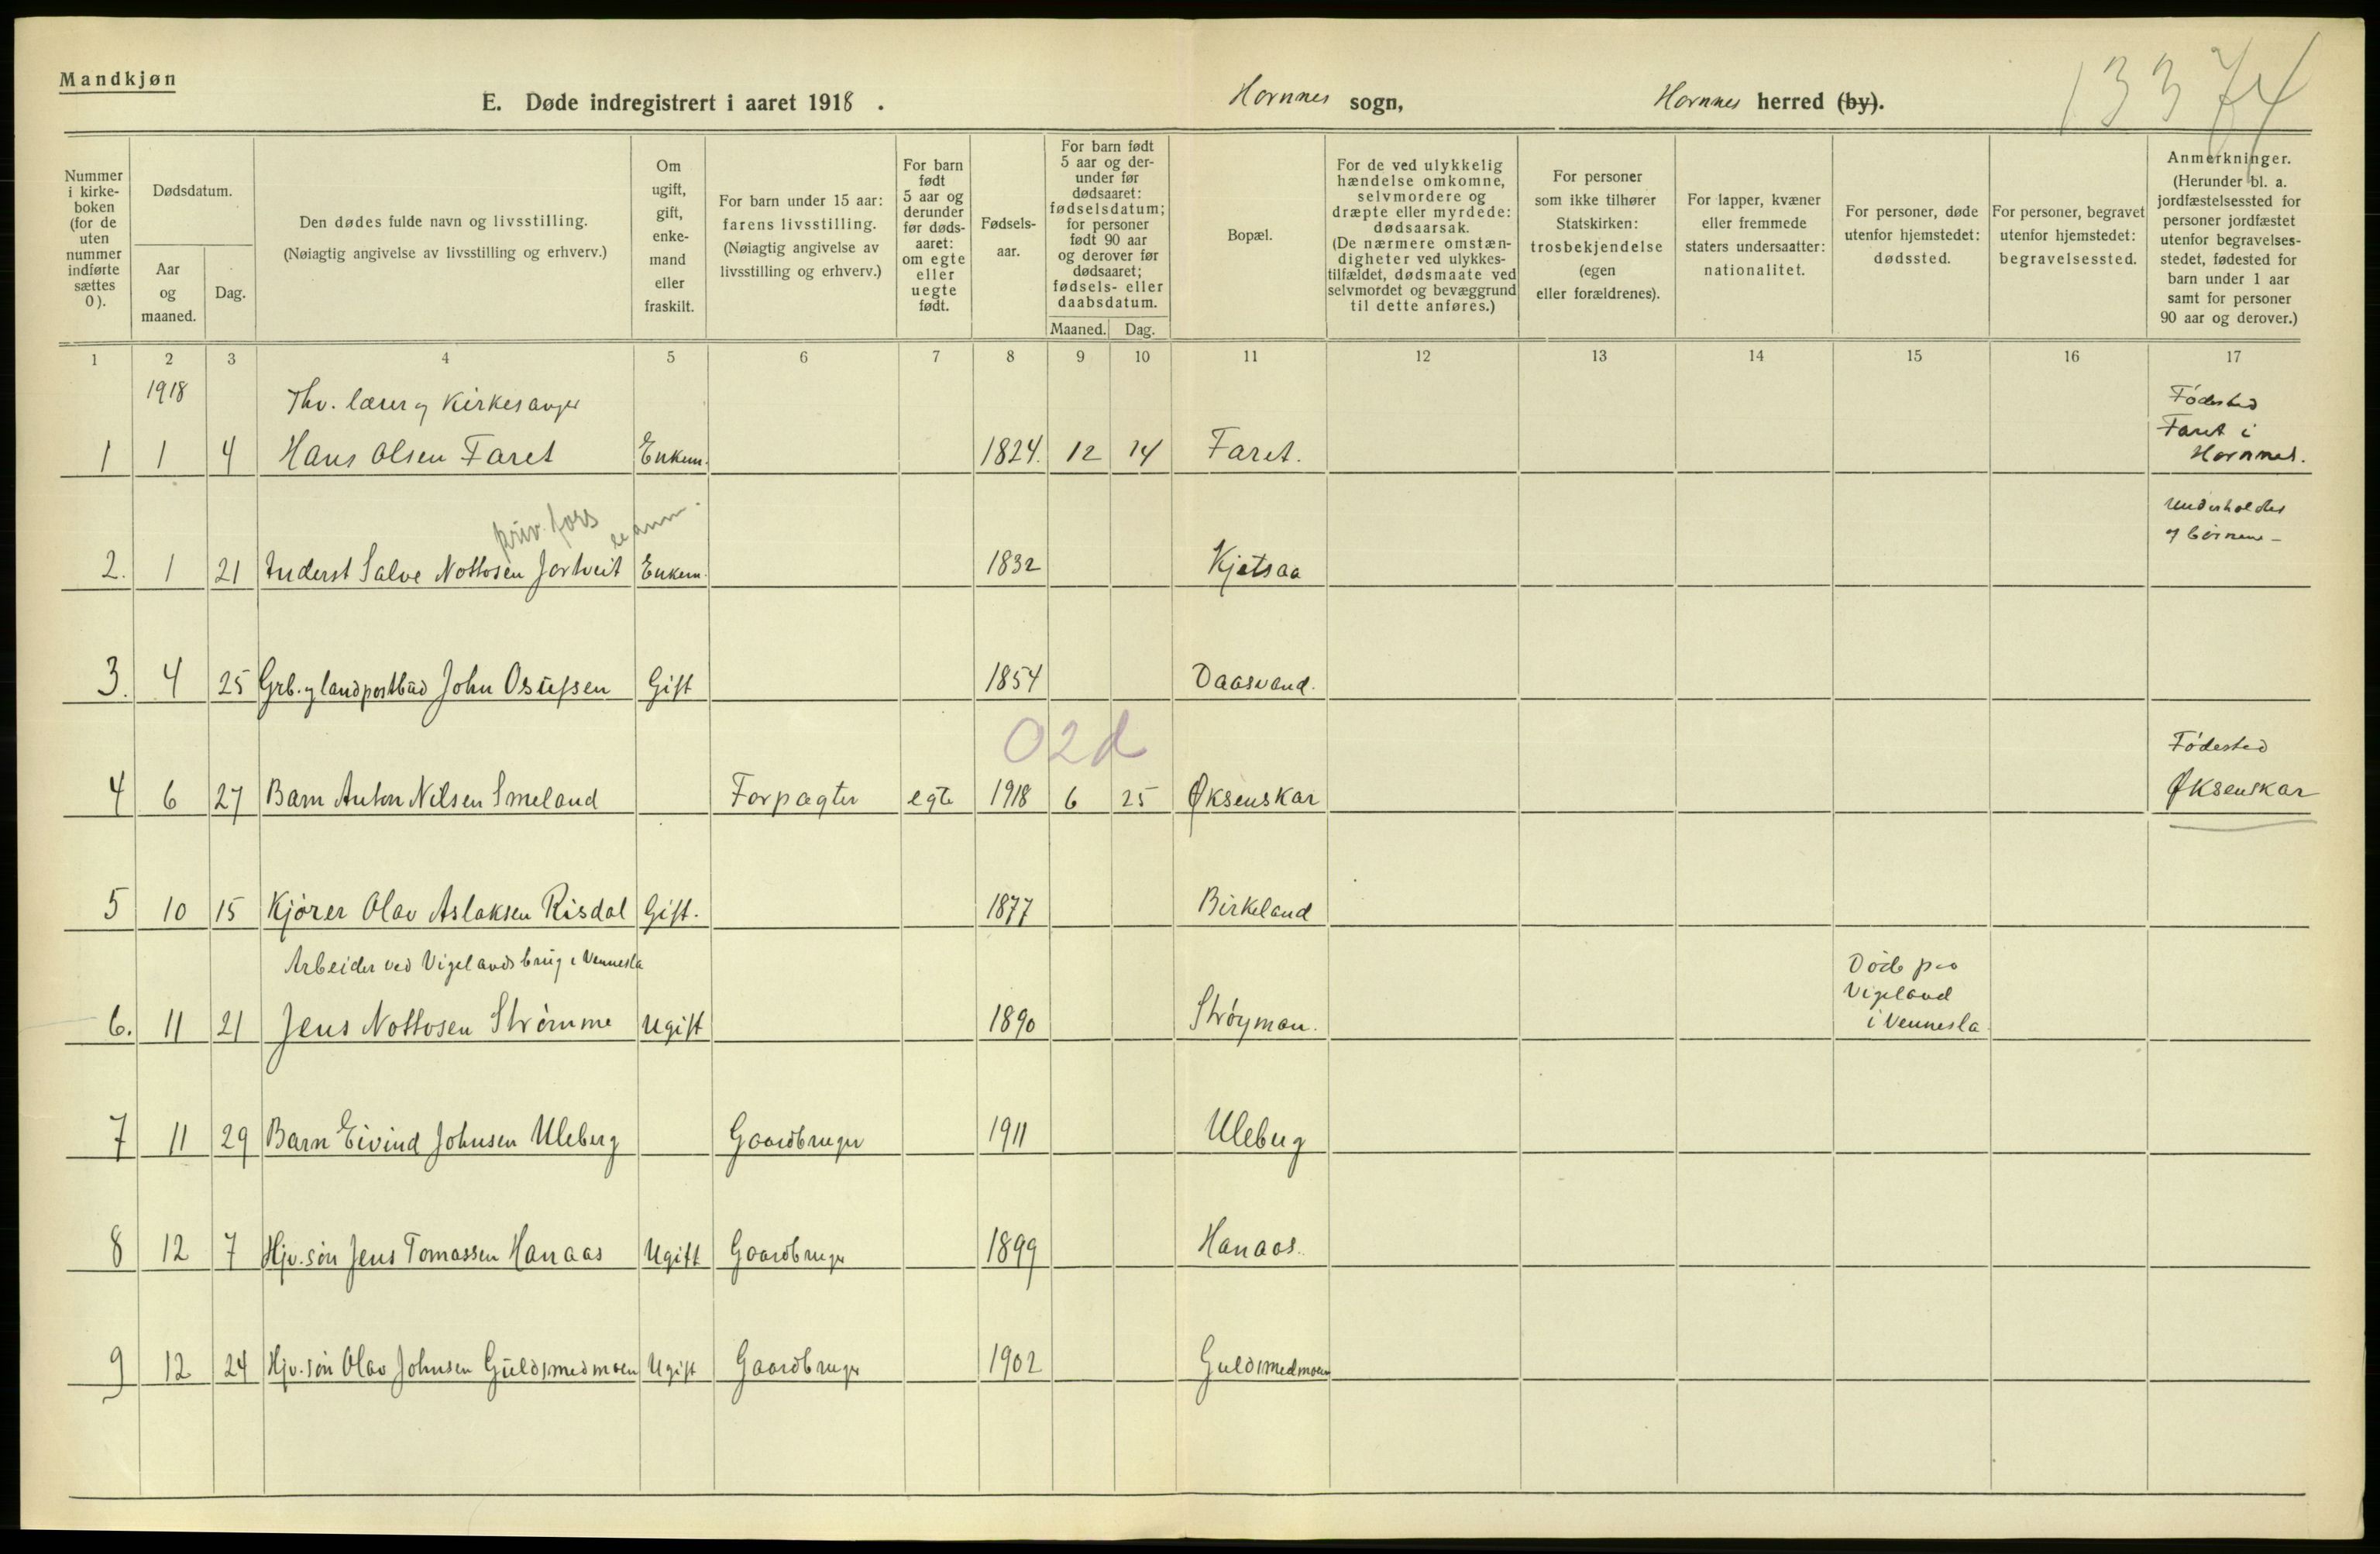 Mandkjøn
E. Døde indregistrert i aaret 1918 .
Hornnes sogn,
Hornnes herred (by).
133 74
Nummer i kirke-boken (for de uten nummer indførte sættes 0).
Dødsdatum.
Aar og maaned.
Dag.
Den dødes fulde navn og livsstilling.
(Nøiagtig angivelse av livsstilling og erhverv.)
Om ugift, gift, enke-mand eller fraskilt.
For barn under 15 aar: farens livsstilling. (Nøiagtig angivelse av livsstilling og erhverv.)
For barn født 5 aar og derunder før døds-aaret: om egte eller uegte født.
Fødsels-aar.
For barn født 5 aar og der-under før dødsaaret: fødselsdatum; for personer født 90 aar og derover før dødsaaret; fødsels- eller daabsdatum.
Maaned. Dag.
Bopæl.
For de ved ulykkelig hændelse omkomne, selvmordere og dræpte eller myrdede: dødsaarsak. (De nærmere omstæn-digheter ved ulykkes-tilfældet, dødsmaate ved selvmordet og bevæggrund til dette anføres.)
For personer som ikke tilhører Statskirken: trosbekjendelse (egen eller forældrenes).
For lapper, kvæner eller fremmede staters undersaatter: nationalitet.
For personer, døde utenfor hjemstedet: dødssted.
For personer, begravet utenfor hjemstedet: begravelsessted.
Anmerkninger. (Herunder bl. a. jordfæstelsessted for personer jordfæstet utenfor begravelses-stedet, fødested for barn under 1 aar samt for personer 90 aar og derover.)
1 2 3 4 5 6 7 8 9 10 11 12 13 14 15 16 17
1918
Fhv. lærer og Kirkesanger
Fødested
Faret i
1 1 4 Hans Olsen Faret Enkem. 1824. 12 14 Faret. Hornnes.
priv. fors
se anm.
Underholdes
af børnene –
2. 1 21 Inderst Salve Nottosen Jortveit Enkem. 1832 Kjetsaa
3. 4 25 Grb. og landpostbud John Osufsen Gift 1854 Daasvand.
02d
Fødested
4 6 27 Barn Anton Nilsen Smeland Forpagter egte 1918 6 25 Øksenskar Øksenskar
5 10 15 Kjører Olav Aslaksen Risdal Gift. 1877 Birkeland
Arbeider ved Vigelands brug i Vennesla
Døde paa
Vigeland
6. 11 21 Jens Nottosen Strømme Ugift 1890 Strøyman. i Vennesla.
7 11 29 Barn Eivind Johnsen Uleberg Gaardbruger 1911 Uleberg
8 12 7 Hjv. søn Jens Tomassen Hanaas Ugift Gaardbruger 1899 Hanaas.
9 12 24 Hjv. søn Olav Johnsen Guldsmedmoen Ugift Gaardbruger 1902 Guldsmedmoen